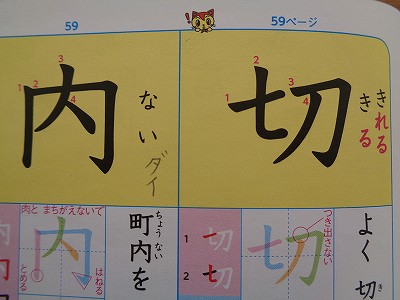 59
59ページ
切
1
2
3
4
きれる
きる
内
1
2
3
4
ない
ダイ
よく切
き
つき出さない
切
1
切
2
切
町内を
ちょうない
肉とまちがえないで
内
はねる
とめる